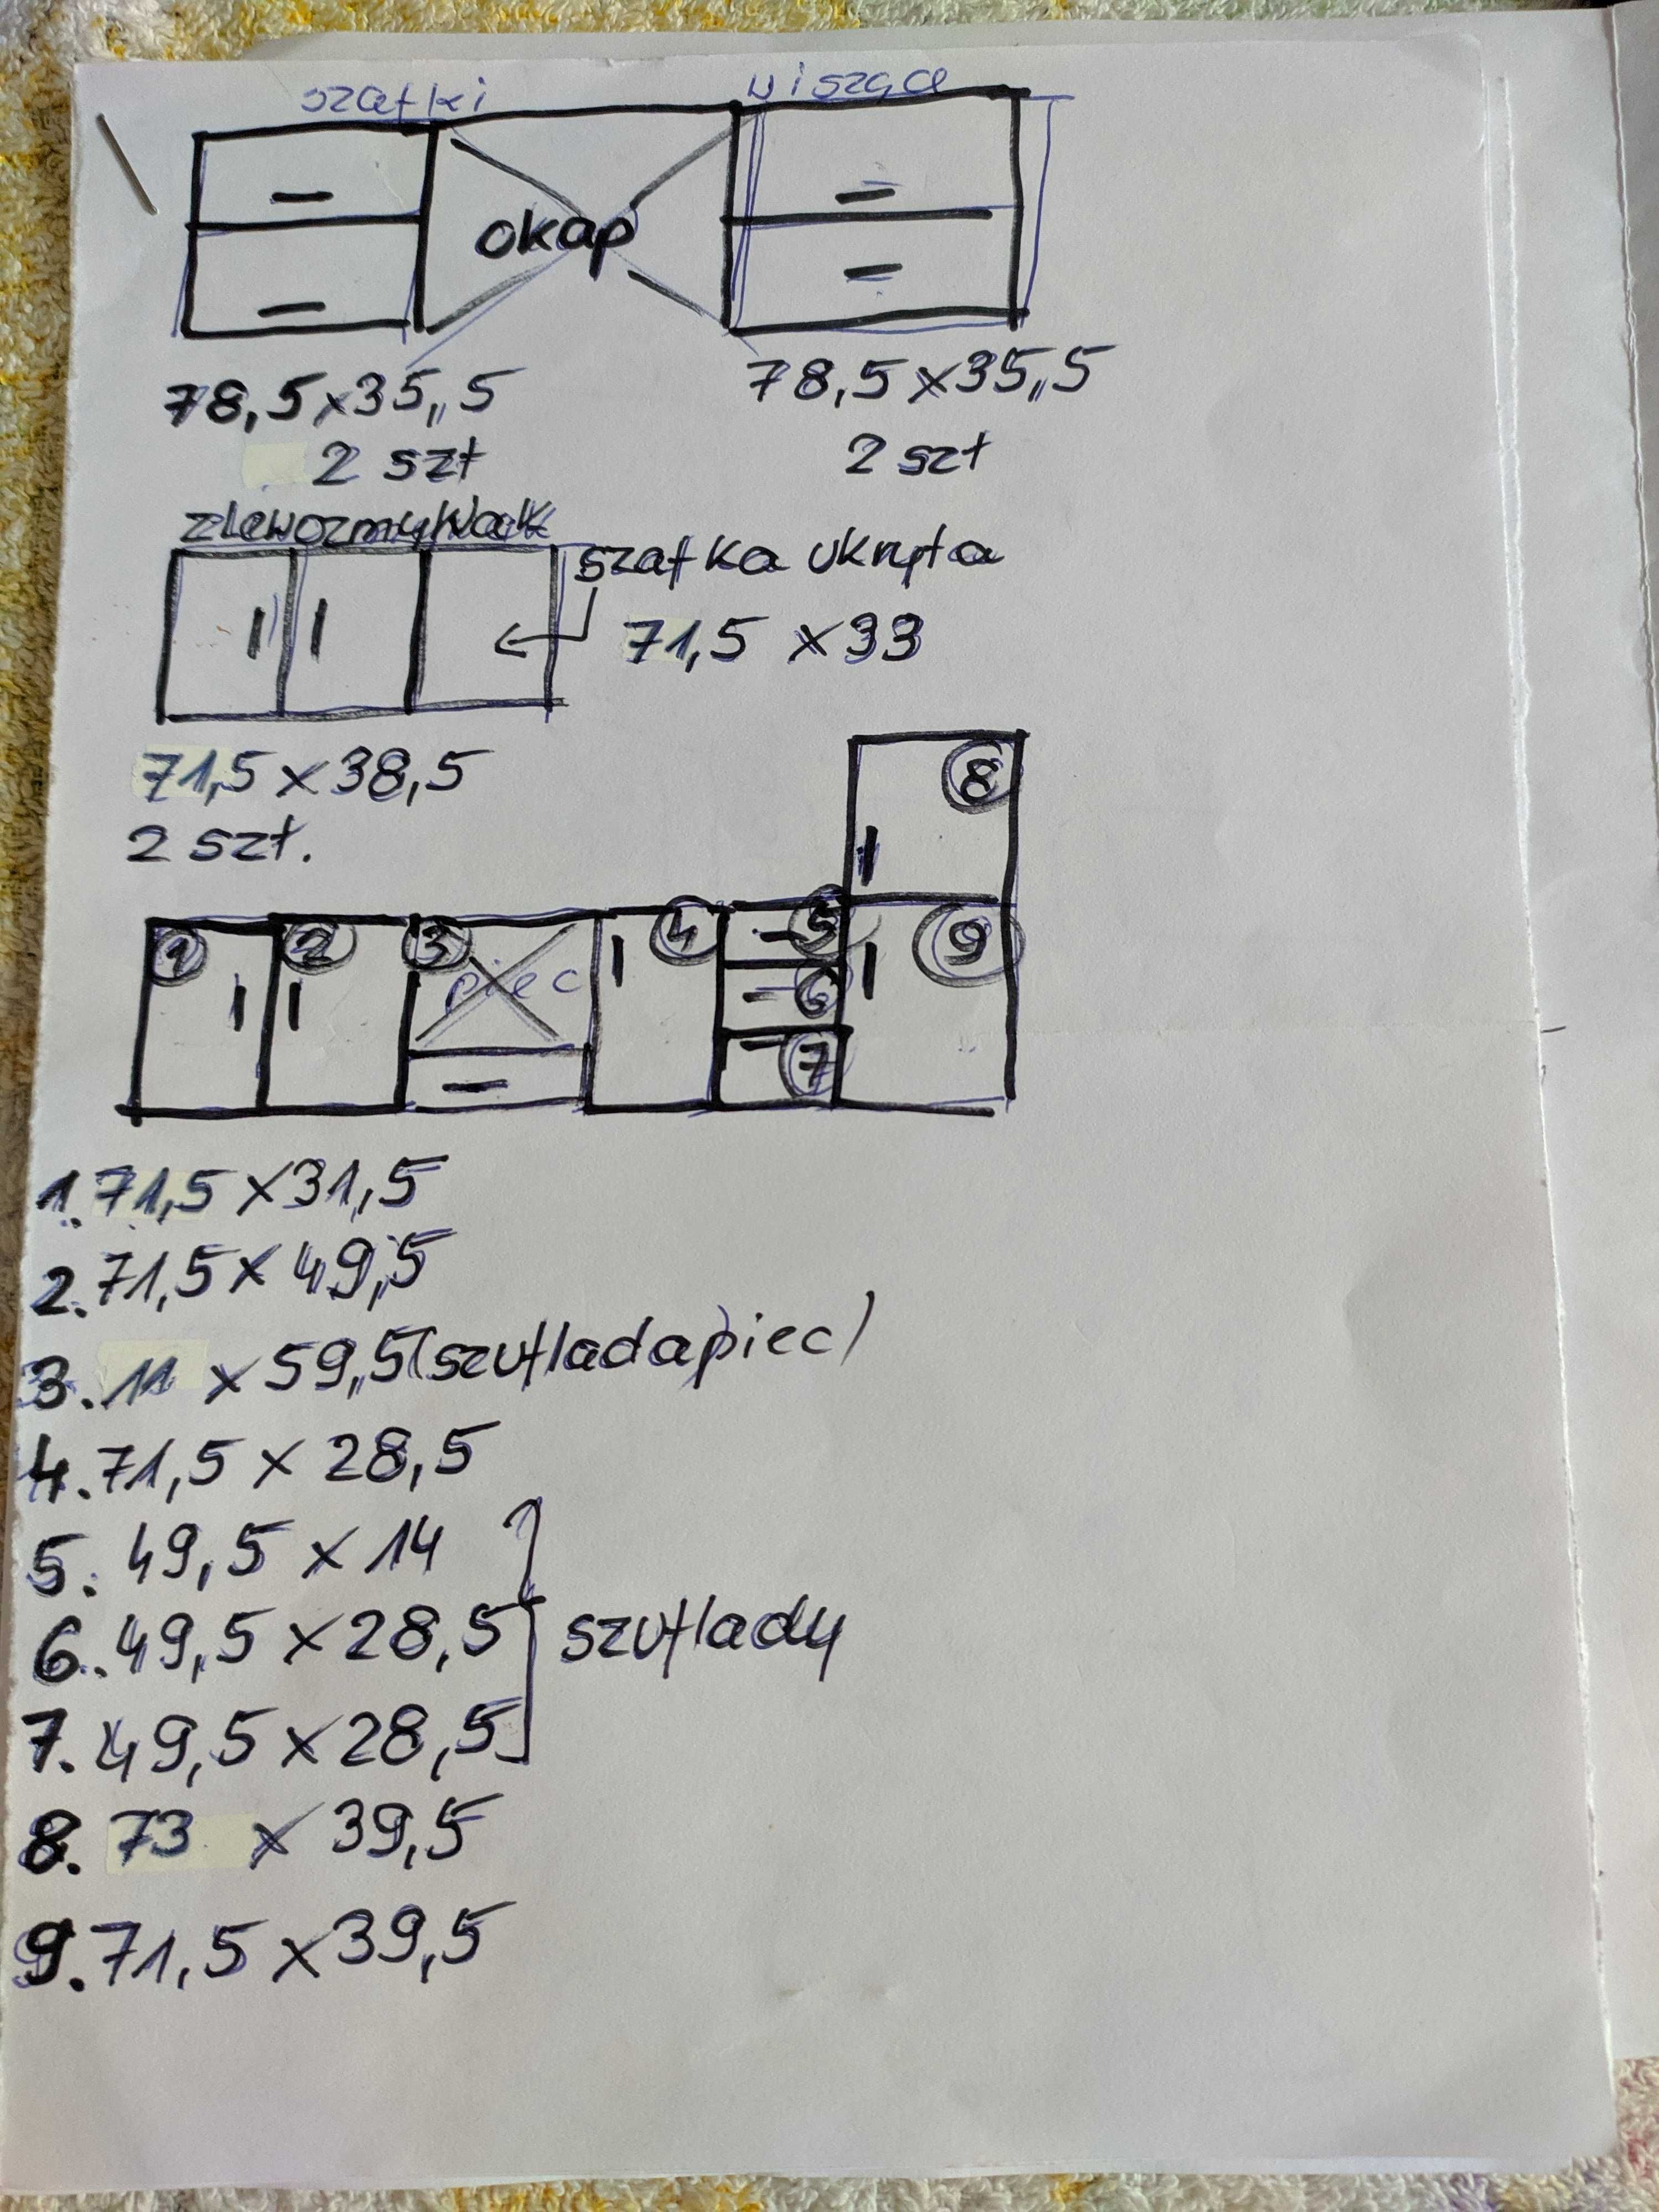 szafki wisząca
okap
78,5 x 35,5
2 szt
78,5 x 35,5
2 szt
zlewozmywak
szafka ukryta
71,5 x 33
71,5 x 38,5
2 szt.
8
1 2 3 4 5 9
piec
6
7
1. 71,5 x 31,5
2. 71,5 x 49,5
3. 11 x 59,5 (szuflada piec)
4. 71,5 x 28,5
5. 49,5 x 14
6. 49,5 x 28,5 szuflady
7. 49,5 x 28,5
8. 73 x 39,5
9. 71,5 x 39,5